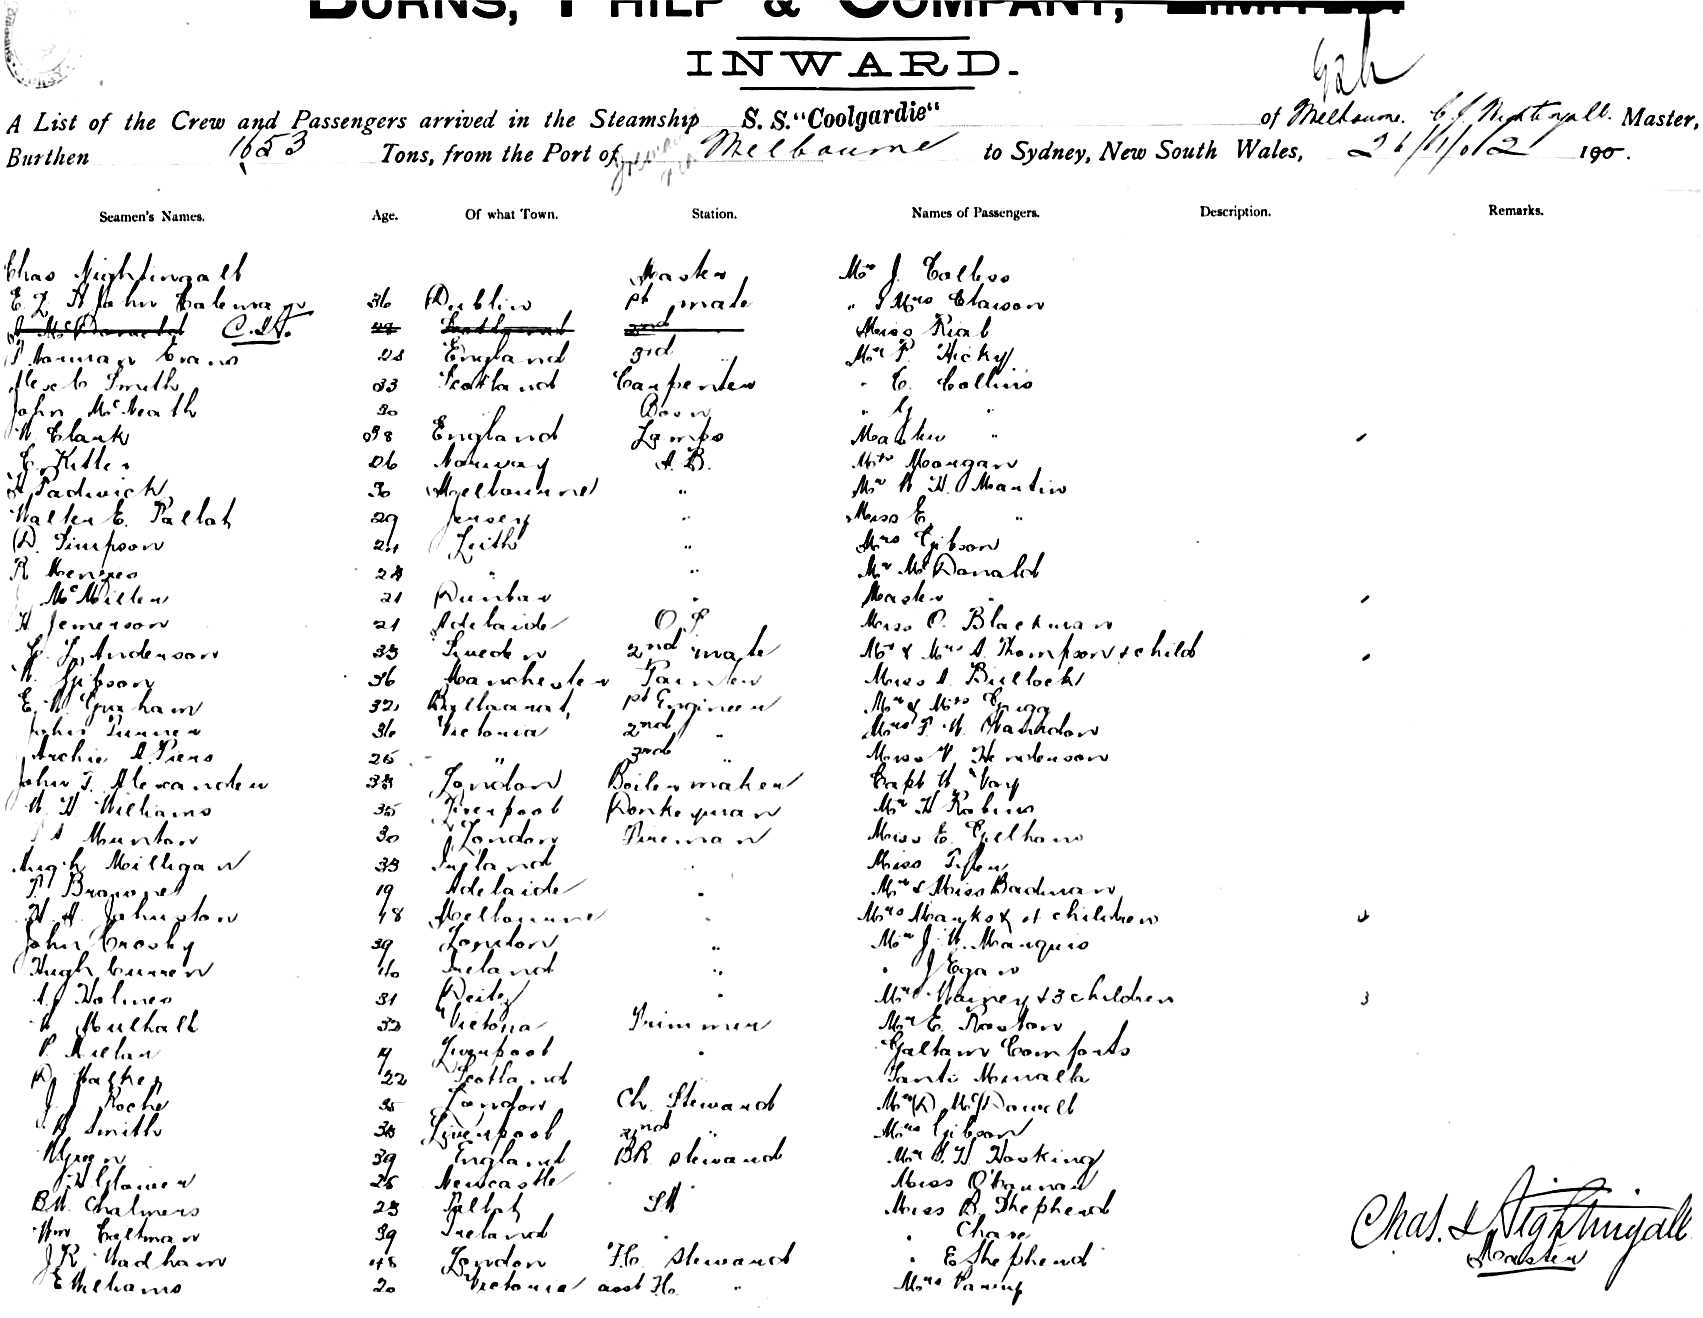 BURNS, PHILP & COMPANY, LIMITED.
INWARD.
A List of the Crew and Passengers arrived in the Steamship S. S. "Coolgardie" of Melbourne. C. J. Nightingall. Master,
Burthen 1653 Tons, from the Port of Melbourne to Sydney, New South Wales, 26/11/02 190 .
Seamen's Names. Age. Of what Town. Station. Names of Passengers. Description. Remarks.
Chas Nightingall Master Mr J. Colless
36 Dublin 1st mate " & Mrs Clawson
C.I.A. Scotland 2nd Miss
Norman Evans 28 England 3rd " Mr P. Hicky
Smith 33 Scotland Carpenter " C. Collins
John McNeath 30 " G "
W Clark England Lamps Master "
26 Norway A.B. Mrs Morgan
Padwick 30 Melbourne " Mr W H. Martin
Walter E. 29 Jersey " Miss E. "
D. Simpson 24 Leith " Mrs Gibson
R Menzies " " Mr McDonald
McMillan 21 Dunbar " Master "
H Jemerson 21 Adelaide O.S Miss O. Blackman
Anderson 33 Sweden 2nd mate Mr & Mrs A. Thompson & child
W. Gibson 36 Manchester Painter Miss A. Bullock
E. W. Graham 32 Ballaarat, 1st Engineer Mr & Mrs Gregg
John Turner 36 Victoria 2nd "
Archie A. Piers 25 " 3rd " Miss V. Henderson
John T. Alexander 38 London Boilermaker Capt W. Vay
W. H Williams 35 Liverpool Donkeyman Mr H Robins
Munton 30 London Fireman Miss E. Gelham
Hugh Milligan 33 Ireland " Miss
P. 19 Adelaide " Mr & Miss Badman
H. A. Johnston 48 Melbourne " Mrs Manks & 4 children 4
John Crosby 39 London " Mr J. W. Marquis
Hugh Curren 40 Ireland " " J Egan
A. Holmes 31 " Mrs Wainey & 3 children 3
W Mulhall 32 Victoria Trimmer Mr E. Roxton
P. 19 Liverpool " Galtam Comforts
D. Walker 22 Scotland Santi
J. J. Roche 35 London Ch. Steward Mr D. McDowell
B Smith 38 Liverpool 2nd " Mrs Gibson
39 England BR. steward Mr G. H Hosking
26 Newcastle Miss
B W. Chalmers 23 Miss B. Shepherd
Wm Caltman 39 Ireland " " Chase
J. R. Wadham 48 London F.C. steward " E Shepherd
E Williams 20 Victoria asst F.C. " Mrs
Chas. J. Nightingall
Master